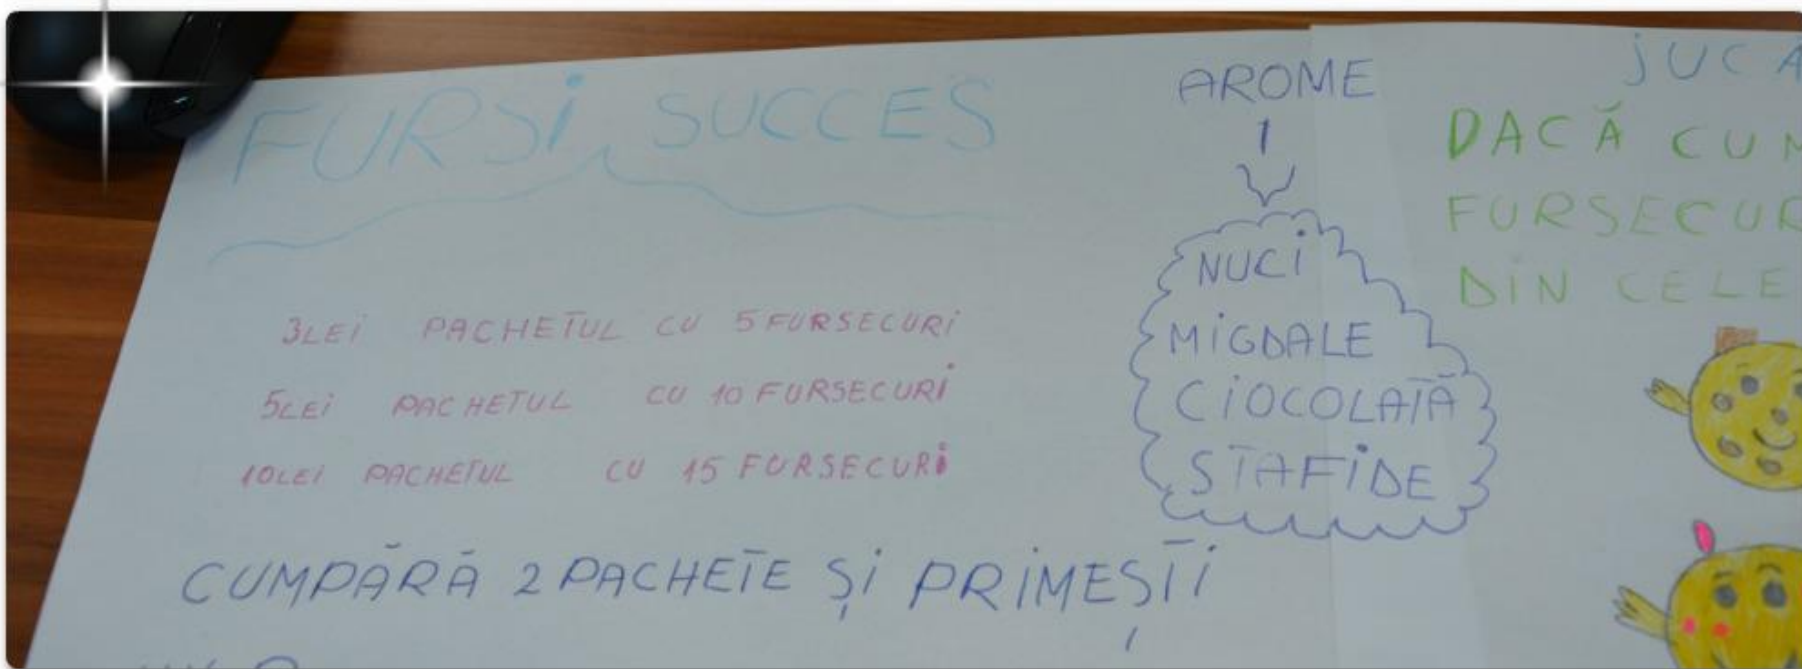 FURSi SUCCES
3LEi PACHETUL CU 5 FURSECURi
5LEi PACHETUL CU 10 FURSECURi
10LEi PACHETUL CU 15 FURSECURi
CUMPĂRĂ 2 PACHETE Și PRiMEȘTi
AROME
NUCi
MiGDALE
CiOCOLATĂ
STAFiDE
DACĂ
DiN CELE